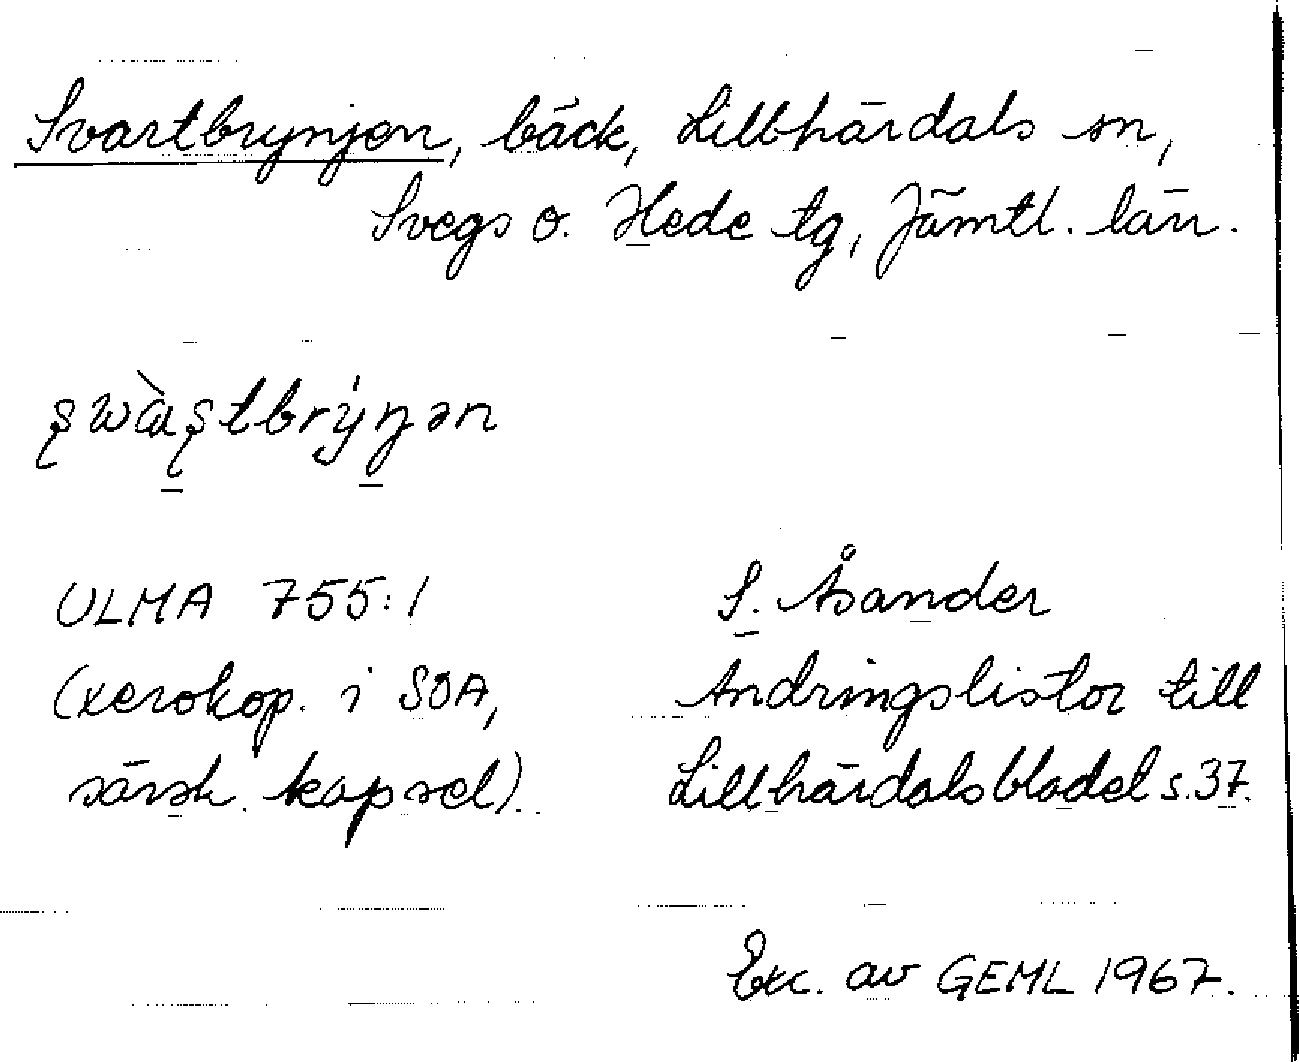 Svartbrynjen, bäck, Lillhärdals sn,
Svegs o. Hede tg, Jämtl. län.
ULMA 755:1
(xerokop. i SOA,
särsk. kapsel).
S. Åsander
Ändringslistor till
Lillhärdalsbladet s.37.
Exc. av GEML 1967.